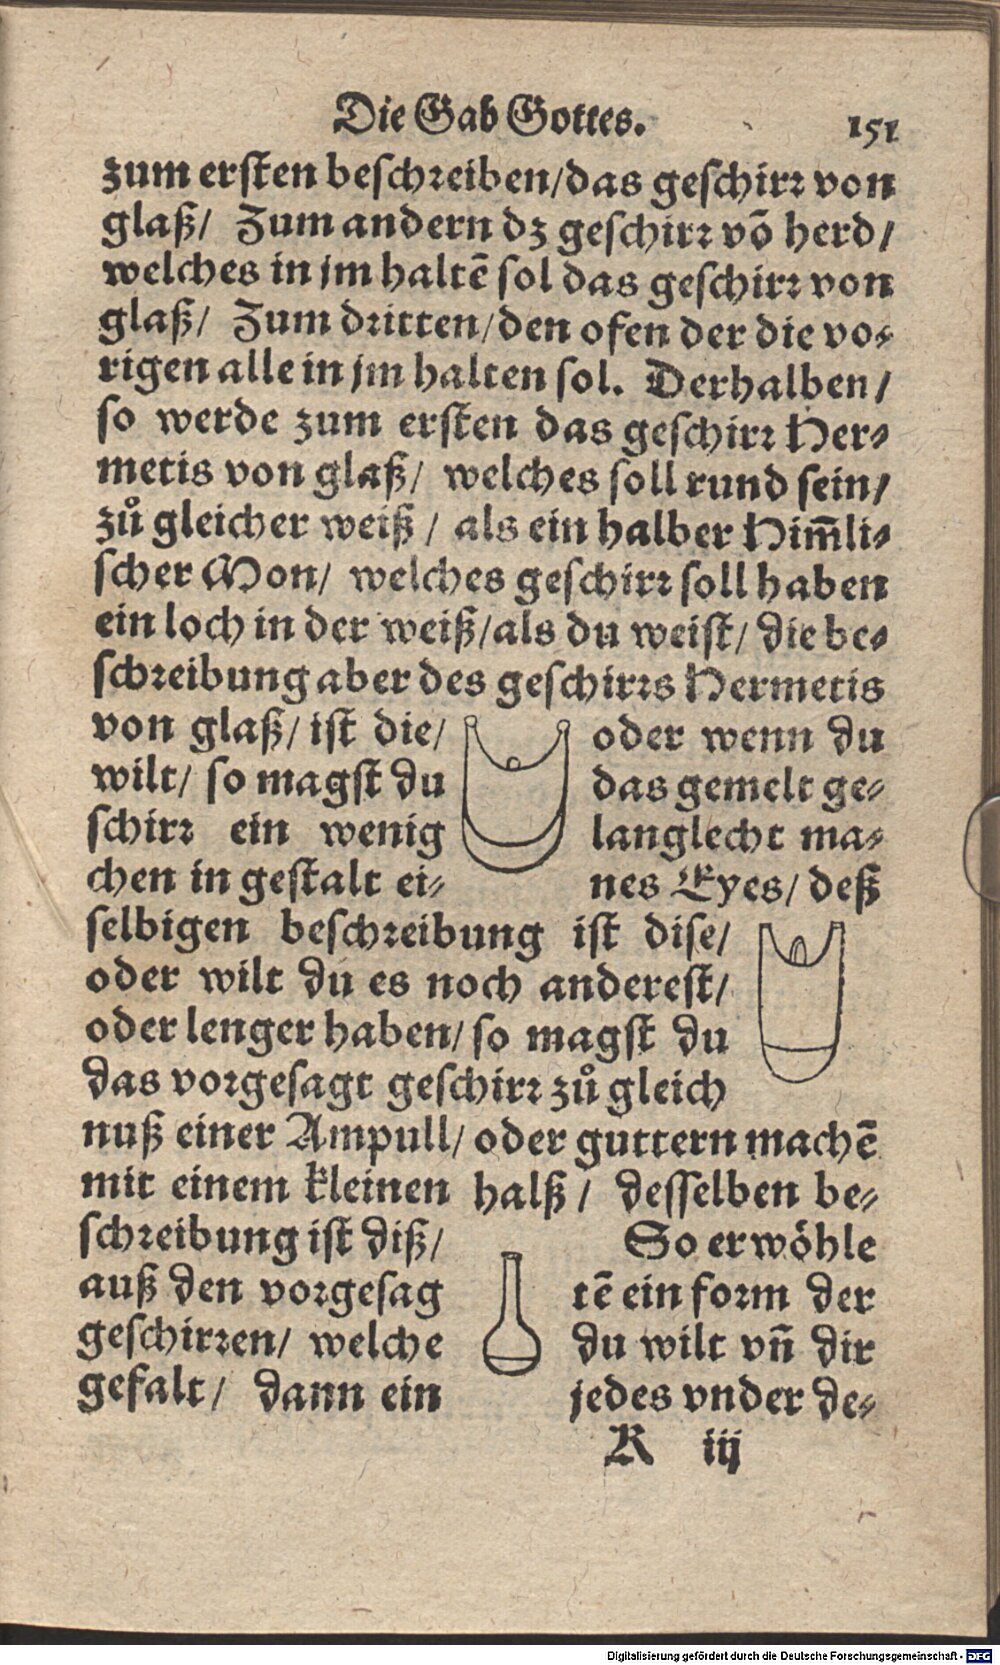 Die Gab Gottes. 151
zum ersten beschreiben/das geschirr von
glaß/ Zum andern dz geschirr võ herd/
welches in jm haltẽ sol das geschirr von
glaß/ Zum dritten/den ofen der die vo-
rigen alle in jm halten sol. Derhalben/
so werde zum ersten das geschirr Her-
metis von glaß/ welches soll rund sein/
zů gleicher weiß/ als ein halber Him̃li-
scher Mon/ welches geschirr soll haben
ein loch in der weiß/als du weist/ die be-
schreibung aber des geschirrs Hermetis
von glaß/ ist die/ oder wenn du
wilt/ so magst du das gemelt ge-
schirr ein wenig langlecht ma-
chen in gestalt ei- nes Eyes/ deß
selbigen beschreibung ist dise/
oder wilt du es noch anderest/
oder lenger haben/ so magst du
das vorgesagt geschirr zů gleich
nuß einer Ampull/ oder guttern machẽ
mit einem kleinen halß/ desselben be-
schreibung ist diß/ So erwöhle
auß den vorgesag tẽ ein form der
geschirren/ welche du wilt vñ dir
gefalt/ dann ein jedes vnder de-
R iij
Digitalisierung gefördert durch die Deutsche Forschungsgemeinschaft - DFG